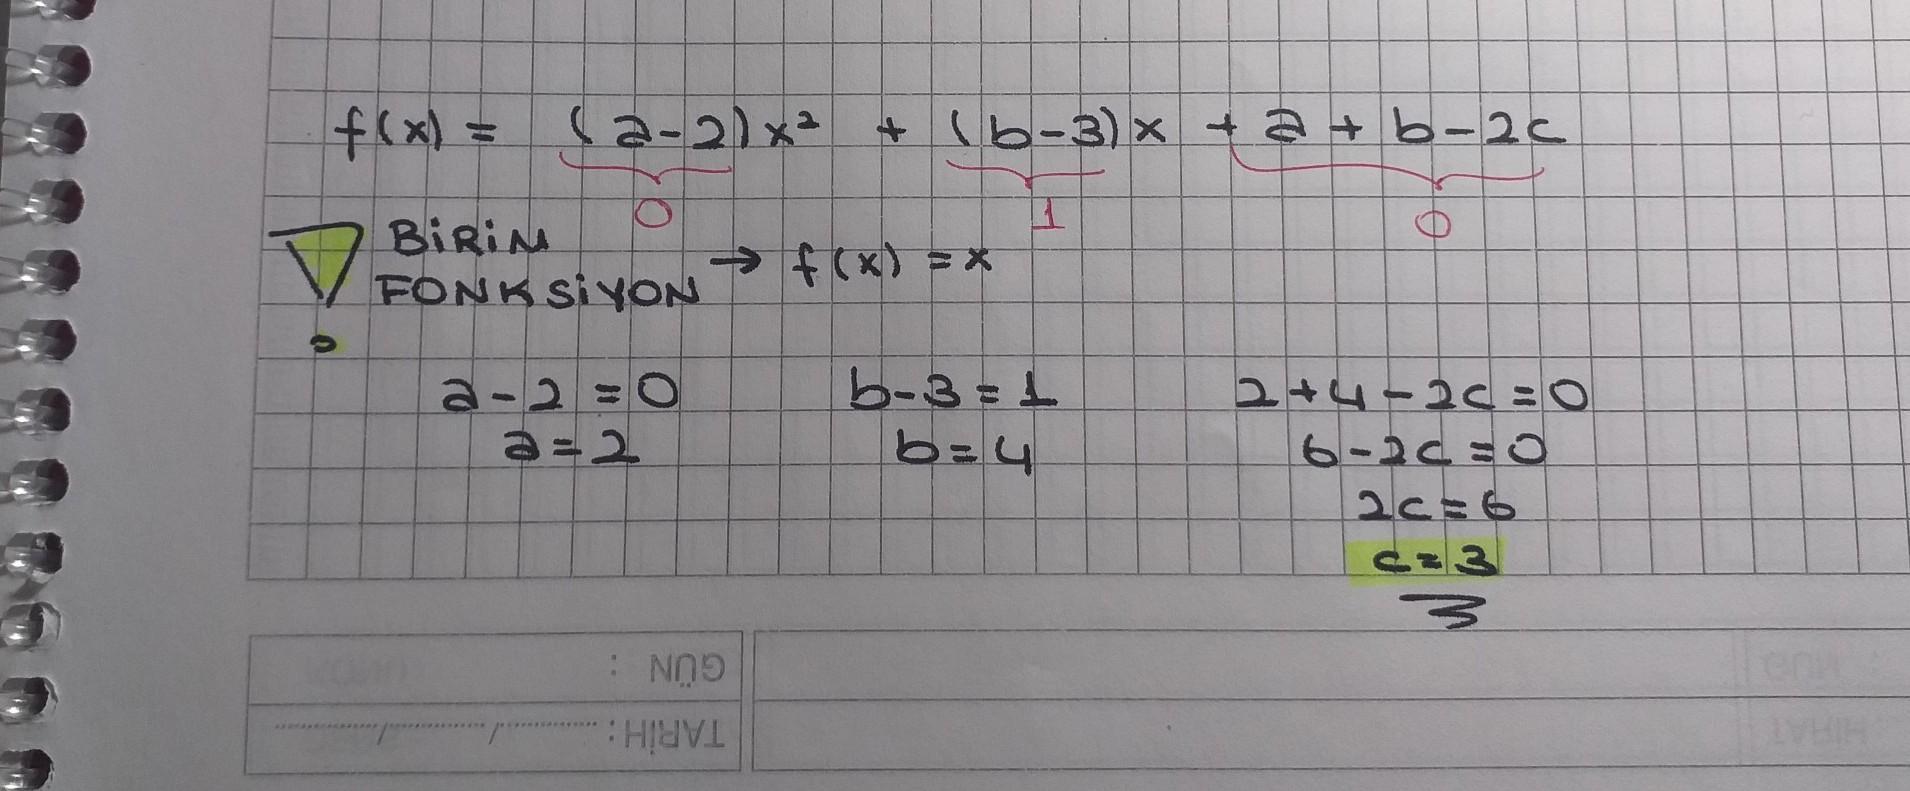 f(x) = (a-2)x² + (b-3)x + a + b-2c
0 1 0
BİRİM
FONKSİYON → f(x) = x
a-2=0 b-3=1 2+4-2c=0
a=2 b=4 6-2c=0
2c=6
c=3
GÜN :
TARİH: ........../........../..........